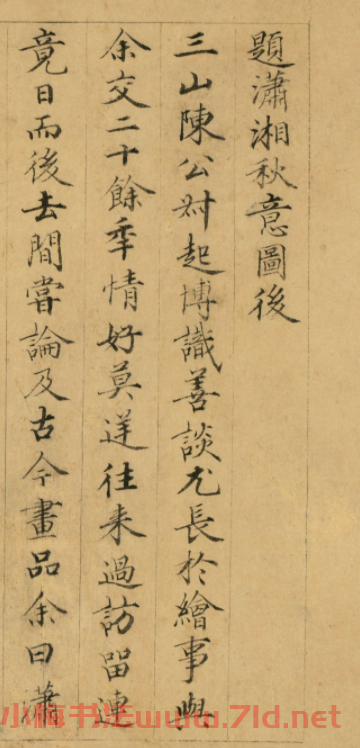 題瀟湘秋意圖後
三山陳公叔起博識善談尤長於繪事與
余交二十餘季情好莫逆往来過訪留連
竟日而後去間嘗論及古今畫品余曰瀟
小楷书法www.7ld.net